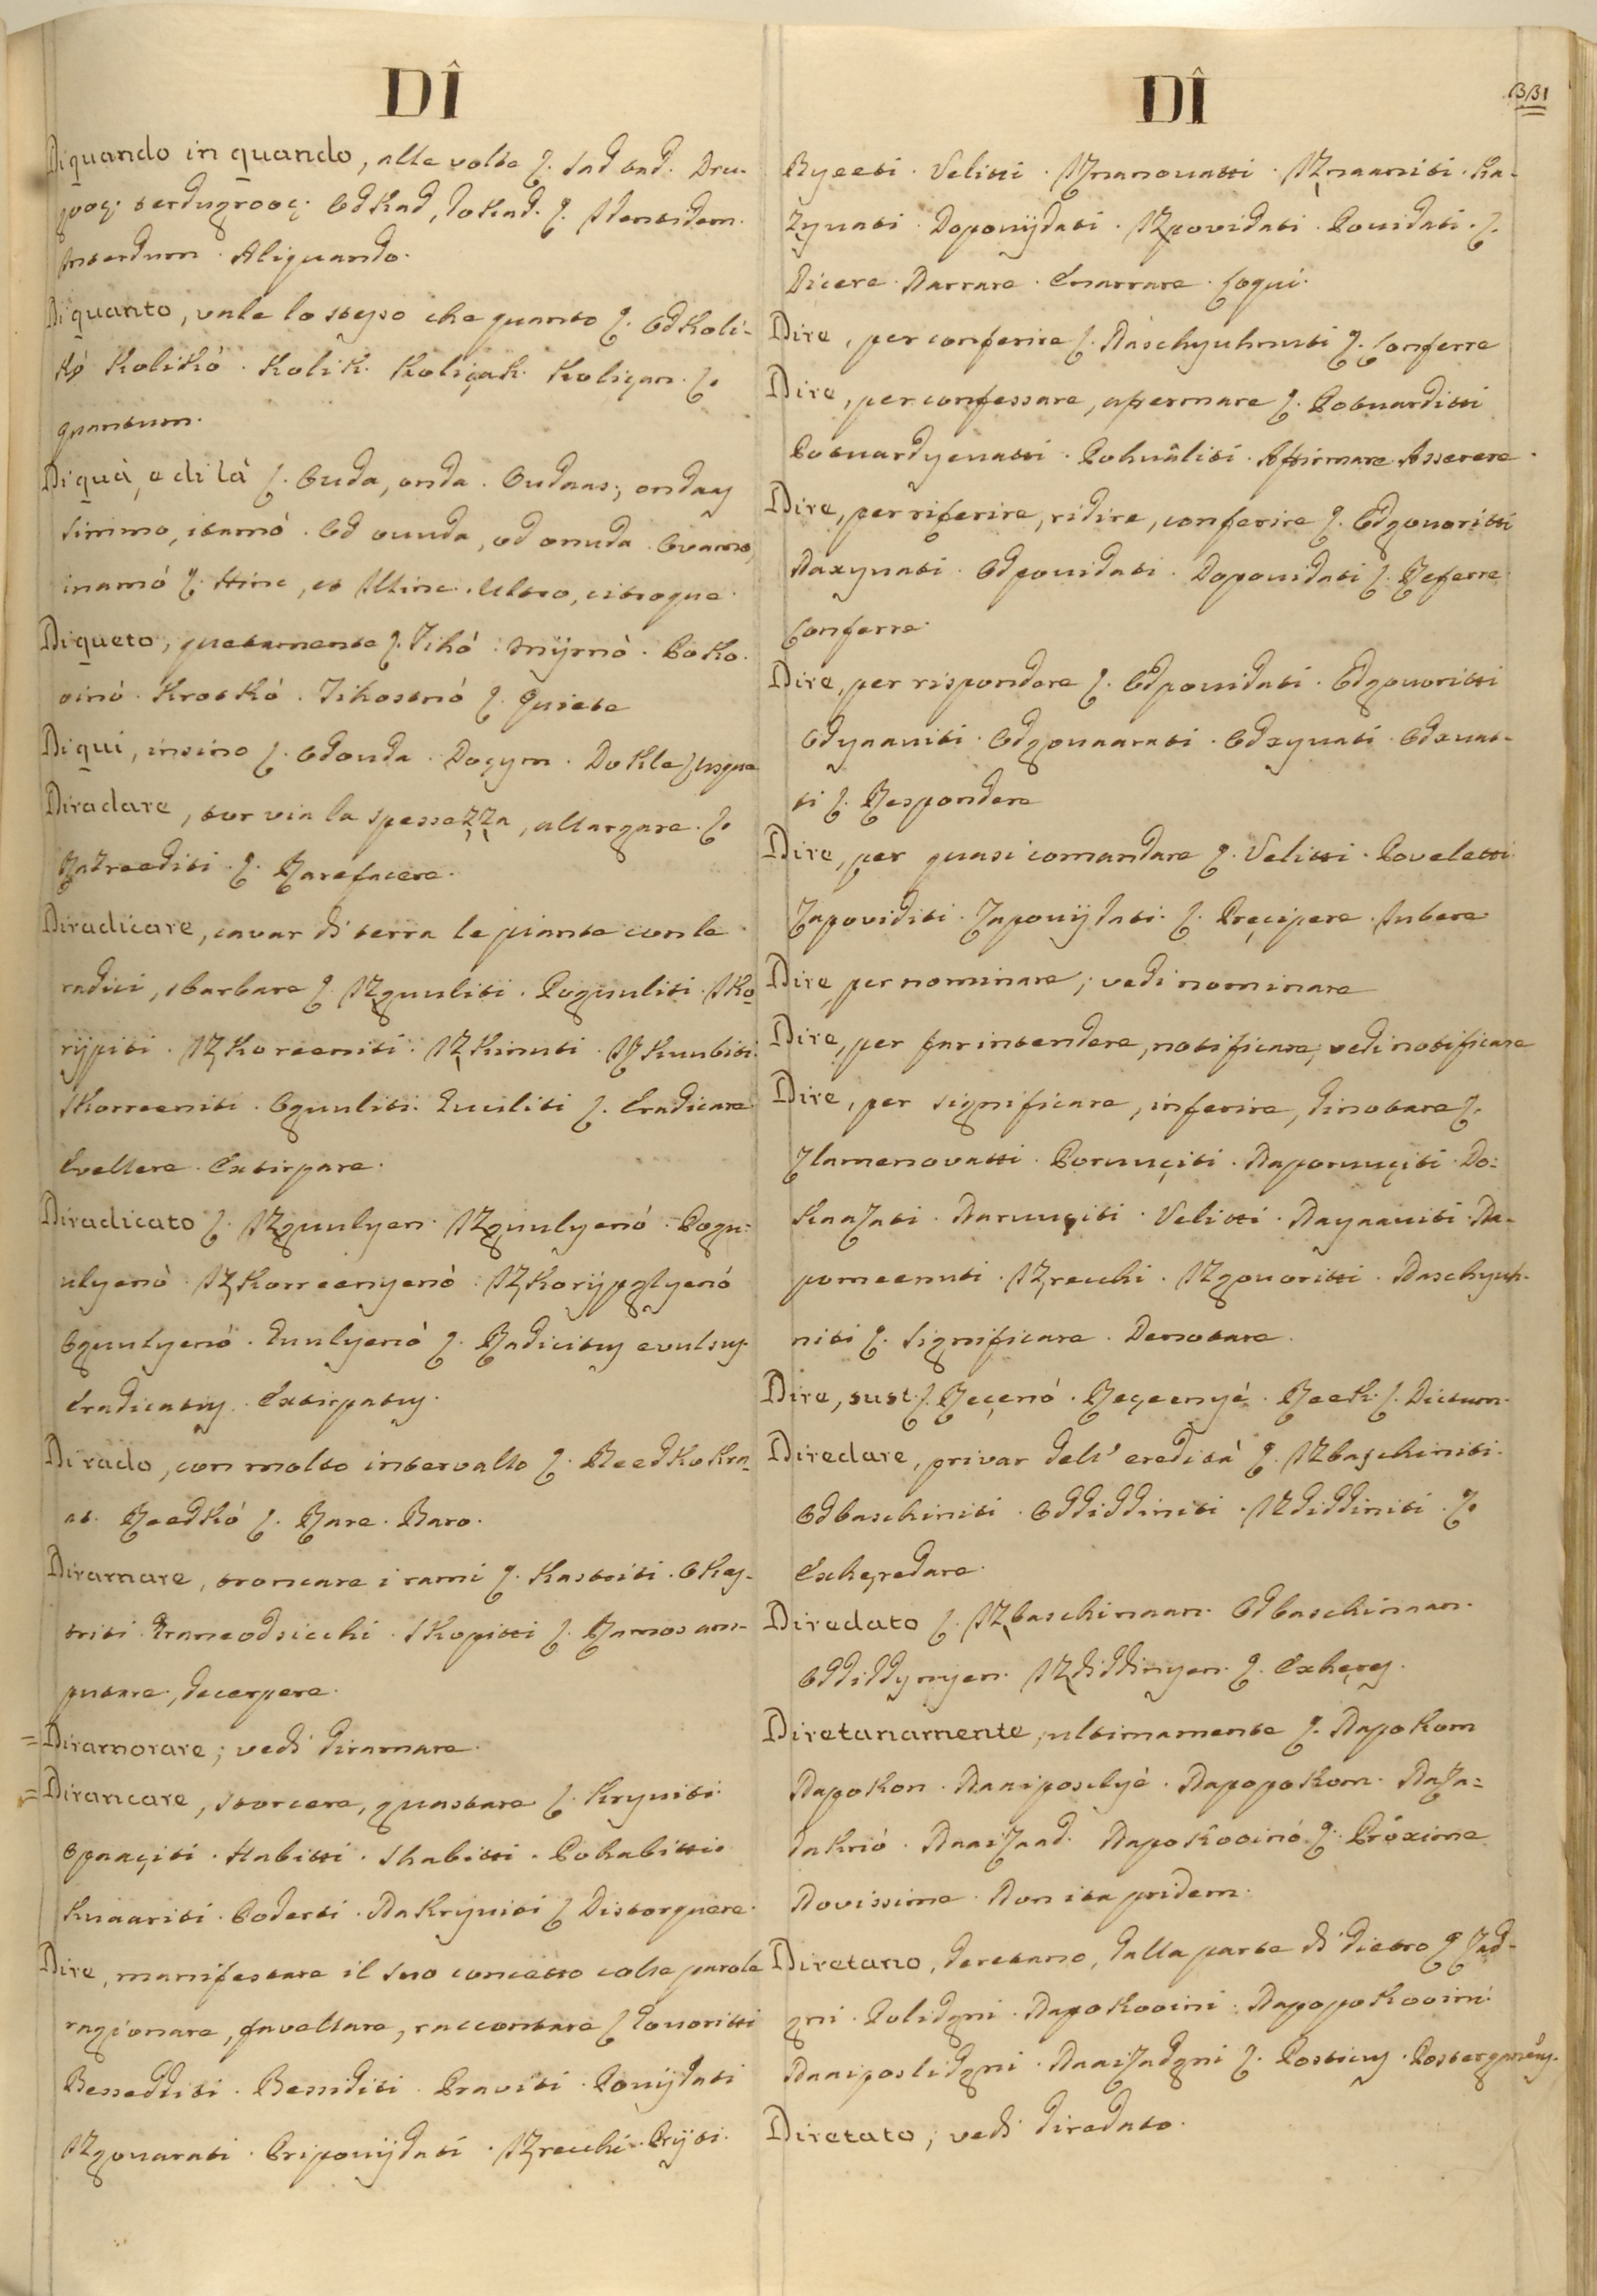 DÎ
Di quando in quando, alle volte ſ. Sad tad. Dru-
gooç. terdugrooç. Odkad, dokad. ſ. Identidem.
Interdum. Aliquando.
Di quanto, vale lo steſso che quanto ſ. Odkoli-
kò Kolikò. Kolik. Koliçak. Koliçan. ſ.
quantum.
Di quà, e di là ſ. Ouda, onda. Oudaas, onday
simmo, itamò. Od ouuda, od onuda. Ovamo,
inamò ſ. Hinc, et Illinc. Ultro, citroque.
Di queto, quetamente ſ. Tihò. Mijrnò. Poko-
oinò. Krotkò. Tihostnò ſ. Quiete
Di qui, insino ſ. Odouda. Doçym. Dokle ſ. Usque
Diradare, tor via la spessezza, allargare. ſ.
Razreediti. ſ. Rarefacere.
Diradicare, cavar di terra le piante con le
radici, sbarbare ſ. Izguuliti. Poguuliti. Isko-
rijpiti. Izkoreeniti. Izkinuti. Izkuubiti.
Skorreeniti. Oguuliti. Guuliti ſ. Eradicare
Evellere. Extirpare.
Diradicato ſ. Izguulyen. Izguulyenò. Pogu-
ulyenò. Izkorreenyenò. Izkorijpglyenò
Oguulyenò. Guulyenò ſ. Radicitus evulsus.
Eradicatus. Extirpatus.
Di rado, con molto intervallo ſ. Reedkokra-
at. Reedkò ſ. Rare. Raro.
Diramare, troncare i rami ſ. Kastriti. Okas-
triti. Graneodsicchi. Skopitti ſ. Ramos am-
putare, decerpere.
= Diramorare; vedi diramare.
= Dirancare, storcere, guastare ſ. Kryuiti.
Opaaçiti. Habitti. Shabitti. Pohabitti.
Kuaariti. Poderti. Nakryuiti ſ. Distorquere.
Dire, manifestare il suo concetto colle parole
ragionare, favellare, raccontare ſ. Gouoritti
Besseditti. Bessiditi. Praviti. Pouijdati
Izgouarati. Pripouijdati. Izrecchi. Prijti.
DÎ
331
Ryeeti. Velitti. Iznanouatti. Iznaaniti. Ka-
zyuati. Dopouijdati. Izpovidati. Pouidati. ſ.
Dicere. Narrare. Enarrare. Loqui.
Dire, per conferire ſ. Naschyuhnuti ſ. Conferre
Dire, per confessare, affermare ſ. Potuarditti
Potuardyeuatti. Pohuàliti. Affirmare. Asserere.
Dire, per riferire, ridire, conferire ſ. Odgouoritti
Naxyuati. Odpouidati. Dopouidati ſ. Referre.
Conferre.
Dire, per rispondere ſ. Odpouidati. Odgouoritti
Odyaauiti. Odgouaarati. Odzyuati. Odzuat-
ti ſ. Respondere
Dire, per quasi comandare ſ. Velitti. Poveletti
Zapoviditi. Zapouijdati. ſ. Preçipere. Iubere
Dire, per nominare; vedi nominare
Dire, per far intendere, notificare; vedi notificare
Dire, per significare, inferire, dinotare ſ.
Zlamenovatti. Poruuçiti. Naporuuçiti. Do-
kaazati. Naruuçiti. Velitti. Nayaauiti. Na-
pomeenuti. Izrecchi. Izgouoritti. Naschyuh-
niti ſ. Significare. Denotare.
Dire, sust. ſ. Reçenò. Reçeenyè. Reek. ſ. Dictum.
Diredare, privar dell' eredità ſ. Izbaschiniti.
Odbaschiniti. Oddiddiniti. Izdiddiniti. ſ.
Exhęredare.
Diredato ſ. Izbaschinaan. Odbaschinaan.
Oddiddynyen. Izdiddinyen. ſ. Exhęres.
Diretanamente, ultimamente ſ. Napokom
Napokon. Naaiposclyè. Napopokom. Naza-
dakniò. Naaizaad. Napokooinò. ſ. Pròxime
Novissime. Non ita pridem.
Diretano, deretano, dalla parte di dietro ſ. Zad-
gni. Poslidgni. Napokooini. Napopokooini.
Naaiposlidgni. Naaizadgni ſ. Posticus. Postergameus.
Diretato; vedi diredato.